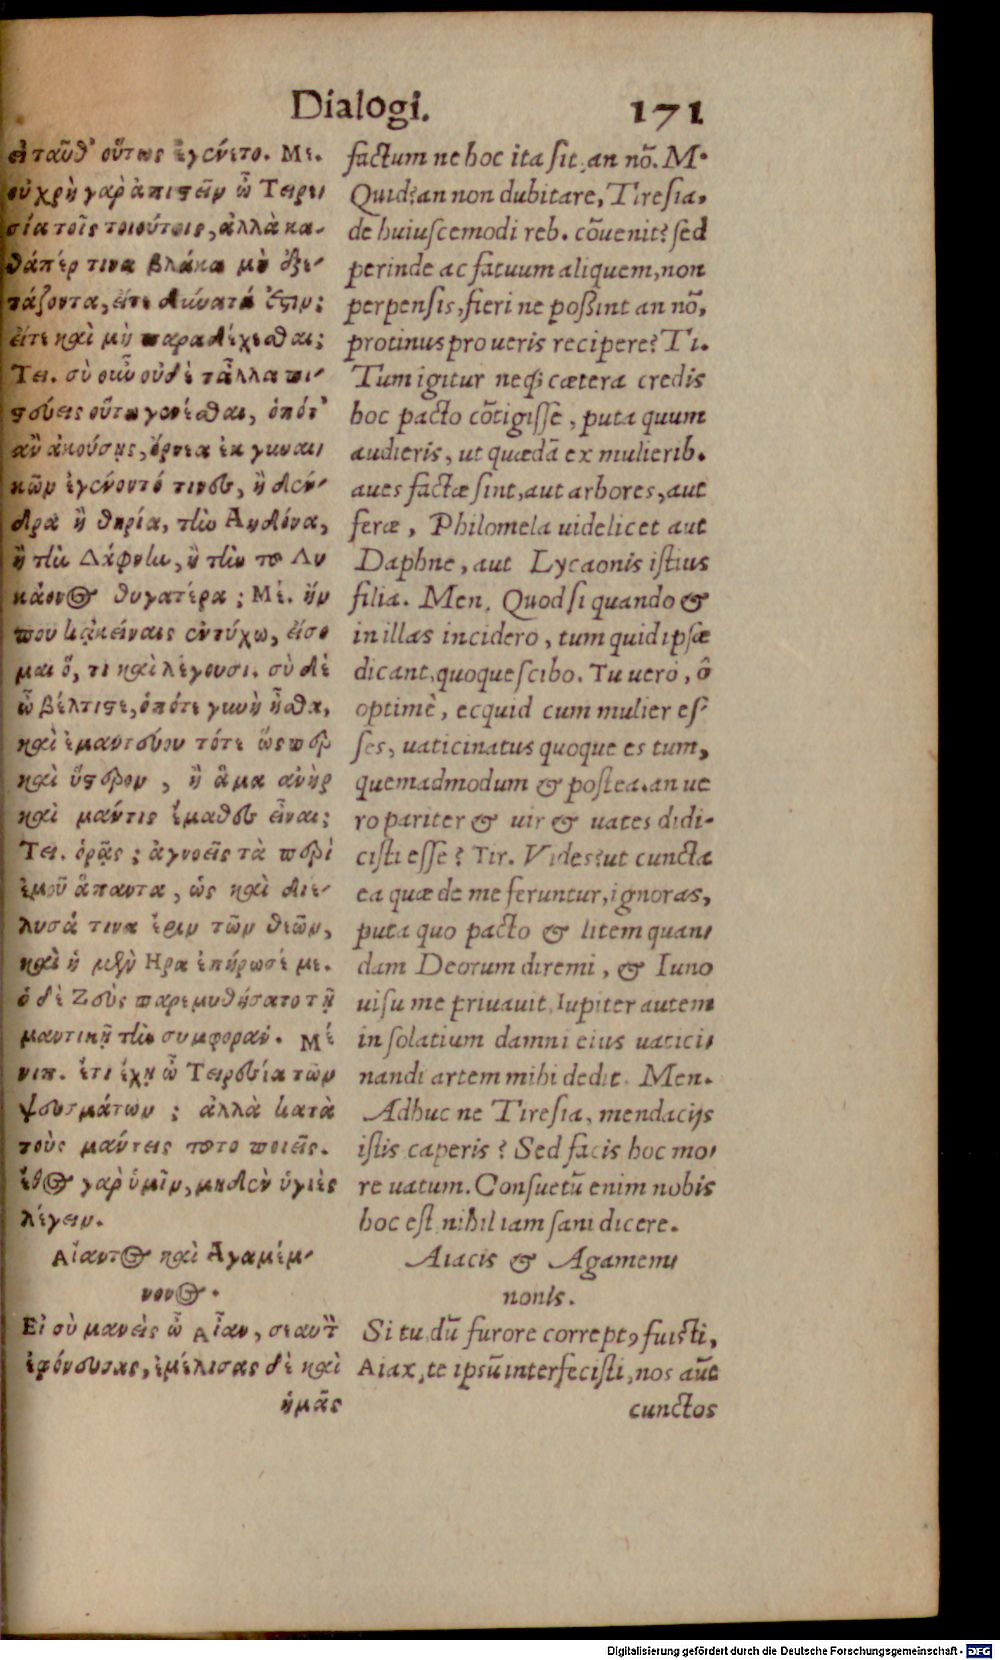 Dialogi. 171
εἰ ταῦθ' οὕτως ἐγένετο. Με.
οὐ χρὴ γὰρ ἀπιστεῖν ὦ Τειρε
σία τοῖς τοιούτοις, ἀλλὰ κα-
θάπέρ τινα βλάκα μὴ ἐξε-
τάζοντα, εἴτε δυνατά ἐστιν;
εἴτε καὶ μὴ παραδέχεσθαι;
Τει. σὺ οὖν οὐδὲ τἆλλα πι-
στεύεις οὕτω γενέσθαι, ὁπότ'
ἂν ἀκούσῃς, ὄρνεα ἐκ γυναι
κῶν ἐγένοντό τινες, ἢ δέν-
δρα ἢ θηρία, τὴν Αηδόνα,
ἢ τὴν Δάφνην, ἢ τὴν τοῦ Λυ
κάονος θυγατέρα; Μέ. ἤν
που κᾀκείναις ἐντύχω, εἴσο
μαι ὅ, τι καὶ λέγουσι. σὺ δὲ
ὦ βέλτιστε, ὁπότε γυνὴ ἦσθα,
καὶ ἐμαντεύου τότε ὥσπερ
καὶ ὕστερον, ἢ ἅμα ἀνὴρ
καὶ μάντις ἔμαθες εἶναι;
Τει. ὁρᾷς; ἀγνοεῖς τὰ περὶ
ἐμοῦ ἅπαντα, ὡς καὶ διέ-
λυσά τινα ἔριν τῶν θεῶν,
καὶ ἡ μὲν Ηρα ἐπήρωσέ με.
ὁ δὲ Ζεὺς παρεμυθήσατο τῇ
μαντικῇ τὴν συμφοράν. Μέ
νιπ. ἔτι ἔχῃ ὦ Τειρεσία τῶν
ψευσμάτων; ἀλλὰ κατὰ
τοὺς μάντεις τοῦτο ποιεῖς.
ἔθος γὰρ ὑμῖν, μηδὲν ὑγιὲς
λέγειν.
Αἴαντος καὶ Αγαμέμ-
νονος.
Εἰ σὺ μανεὶς ὦ Αἶαν, σεαυτὸν
ἐφόνευσας, ἐμέλισας δὲ καὶ
ἡμᾶς
factum ne hoc ita sit, an nõ. M.
Quid? an non dubitare, Tiresia,
de huiuscemodi reb. cõuenit? sed
perinde ac fatuum aliquem, non
perpensis, fieri ne poßint an nõ,
protinus pro ueris recipere? Ti.
Tum igitur neq; cætera credis
hoc pacto cõtigisse, puta quum
audieris, ut quædã ex mulierib.
aues factæ sint, aut arbores, aut
feræ, Philomela uidelicet aut
Daphne, aut Lycaonis istius
filia. Men. Quod si quando &
in illas incidero, tum quid ipsæ
dicant, quoque scibo. Tu uero, ô
optimè, ecquid cum mulier es-
ses, uaticinatus quoque es tum,
quemadmodum & postea. an ue
ro pariter & uir & uates didi-
cisti esse? Tir. Vides? ut cuncta
ea quæ de me feruntur, ignoras,
puta quo pacto & litem quan-
dam Deorum diremi, & Iuno
uisu me priuauit, Iupiter autem
in solatium damni eius uatici-
nandi artem mihi dedit. Men.
Adhuc ne Tiresia, mendacijs
istis caperis? Sed facis hoc mo-
re uatum. Consuetũ enim nobis
hoc est nihil iam sani dicere.
Aiacis & Agamem-
nonis.
Si tu dũ furore correptꝰ fuisti,
Aiax, te ipsũ interfecisti, nos aũt
cunctos
Digitalisierung gefördert durch die Deutsche Forschungsgemeinschaft - DFG